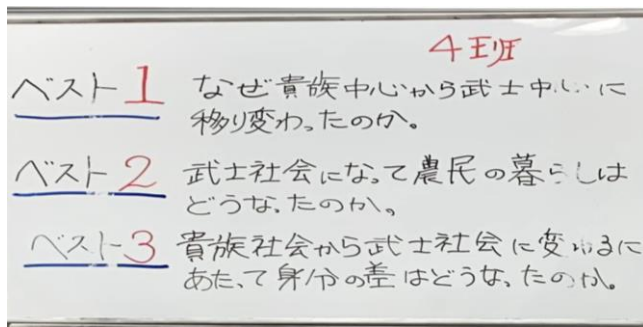 4班
ベスト1 なぜ貴族中心から武士中心に
移り変わったのか。
ベスト2 武士社会になって農民の暮らしは
どうなったのか。
ベスト3 貴族社会から武士社会に変わるに
あたって身分の差はどうなったのか。